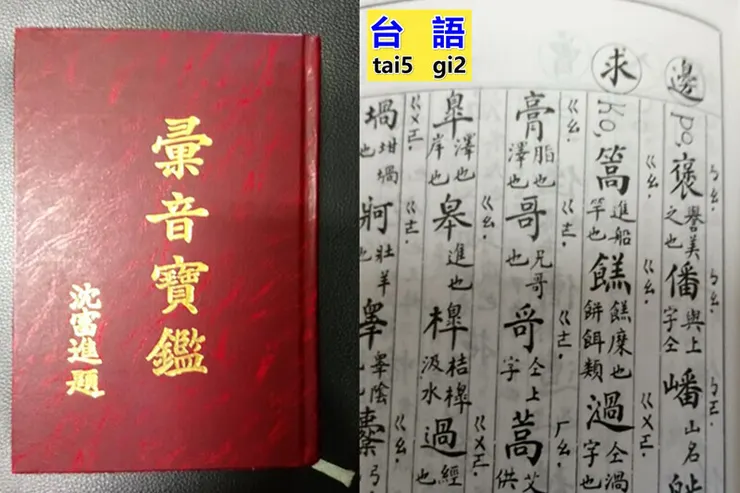 彙音寶鑑
沈富進題
台語
tai5 gi2
邊 po. 褒 譽美之也 ㄅㄠ. 僠 與上字仝 ㄅㄠ. 嶓 山名 ㄅㄛ.
求 Ko. 篙 進船竿也 ㄍㄠ. 餻 餻糜也餅餌類 ㄍㄠ. 過 仝渦字也 ㄍㄨㄛ.
膏 脂也澤也 ㄍㄠ. 哥 兄哥也 ㄍㄜ. 哥 仝上字 ㄍㄜ. 蒿 艾供 ㄏㄠ.
皐 澤也岸也 ㄍㄠ. 皋 進也 ㄍㄠ. 槔 桔槔汲水 過 經也 ㄍㄨㄛ.
堝 坩堝也 ㄍㄨㄛ. 牁 ㄍㄜ. 睾 睾陰 ㄍㄠ.